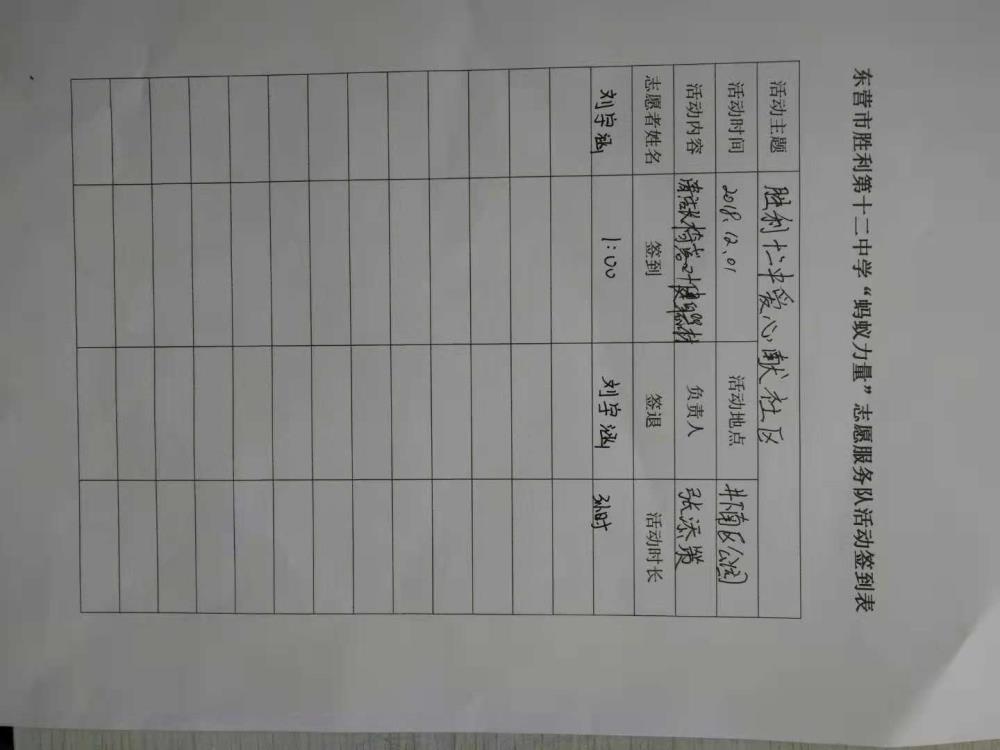 东营市胜利第十二中学“蚂蚁力量”志愿服务队活动签到表
活动主题 胜利十二中爱心献社区
活动时间 2018.12.01 活动地点 井下南区公园
活动内容 负责人 张添
志愿者姓名 签到 签退 活动时长
刘学涵 1:00 刘学涵 小时